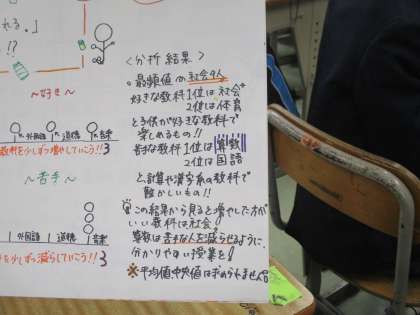 れる。」
!?
~好き~
外国語 道徳 音楽
教科を少しずつ増やしていこう!! 3
~苦手~
外国語 道徳 音楽
を少しずつ減らしていこう!! 3
<分析結果>
最頻値の社会4人
好きな教科1位は社会
2位は体育
と子供が好きな教科で
楽しめるもの!!
苦手な教科1位は算数
2位は国語
と計算や漢字系の教科で
難かしいもの!!
この結果から見ると増やした方が
いい教科は社会!
算数は苦手な人を減らせるように、
分かりやすい授業を!
※平均値中央値は求められません